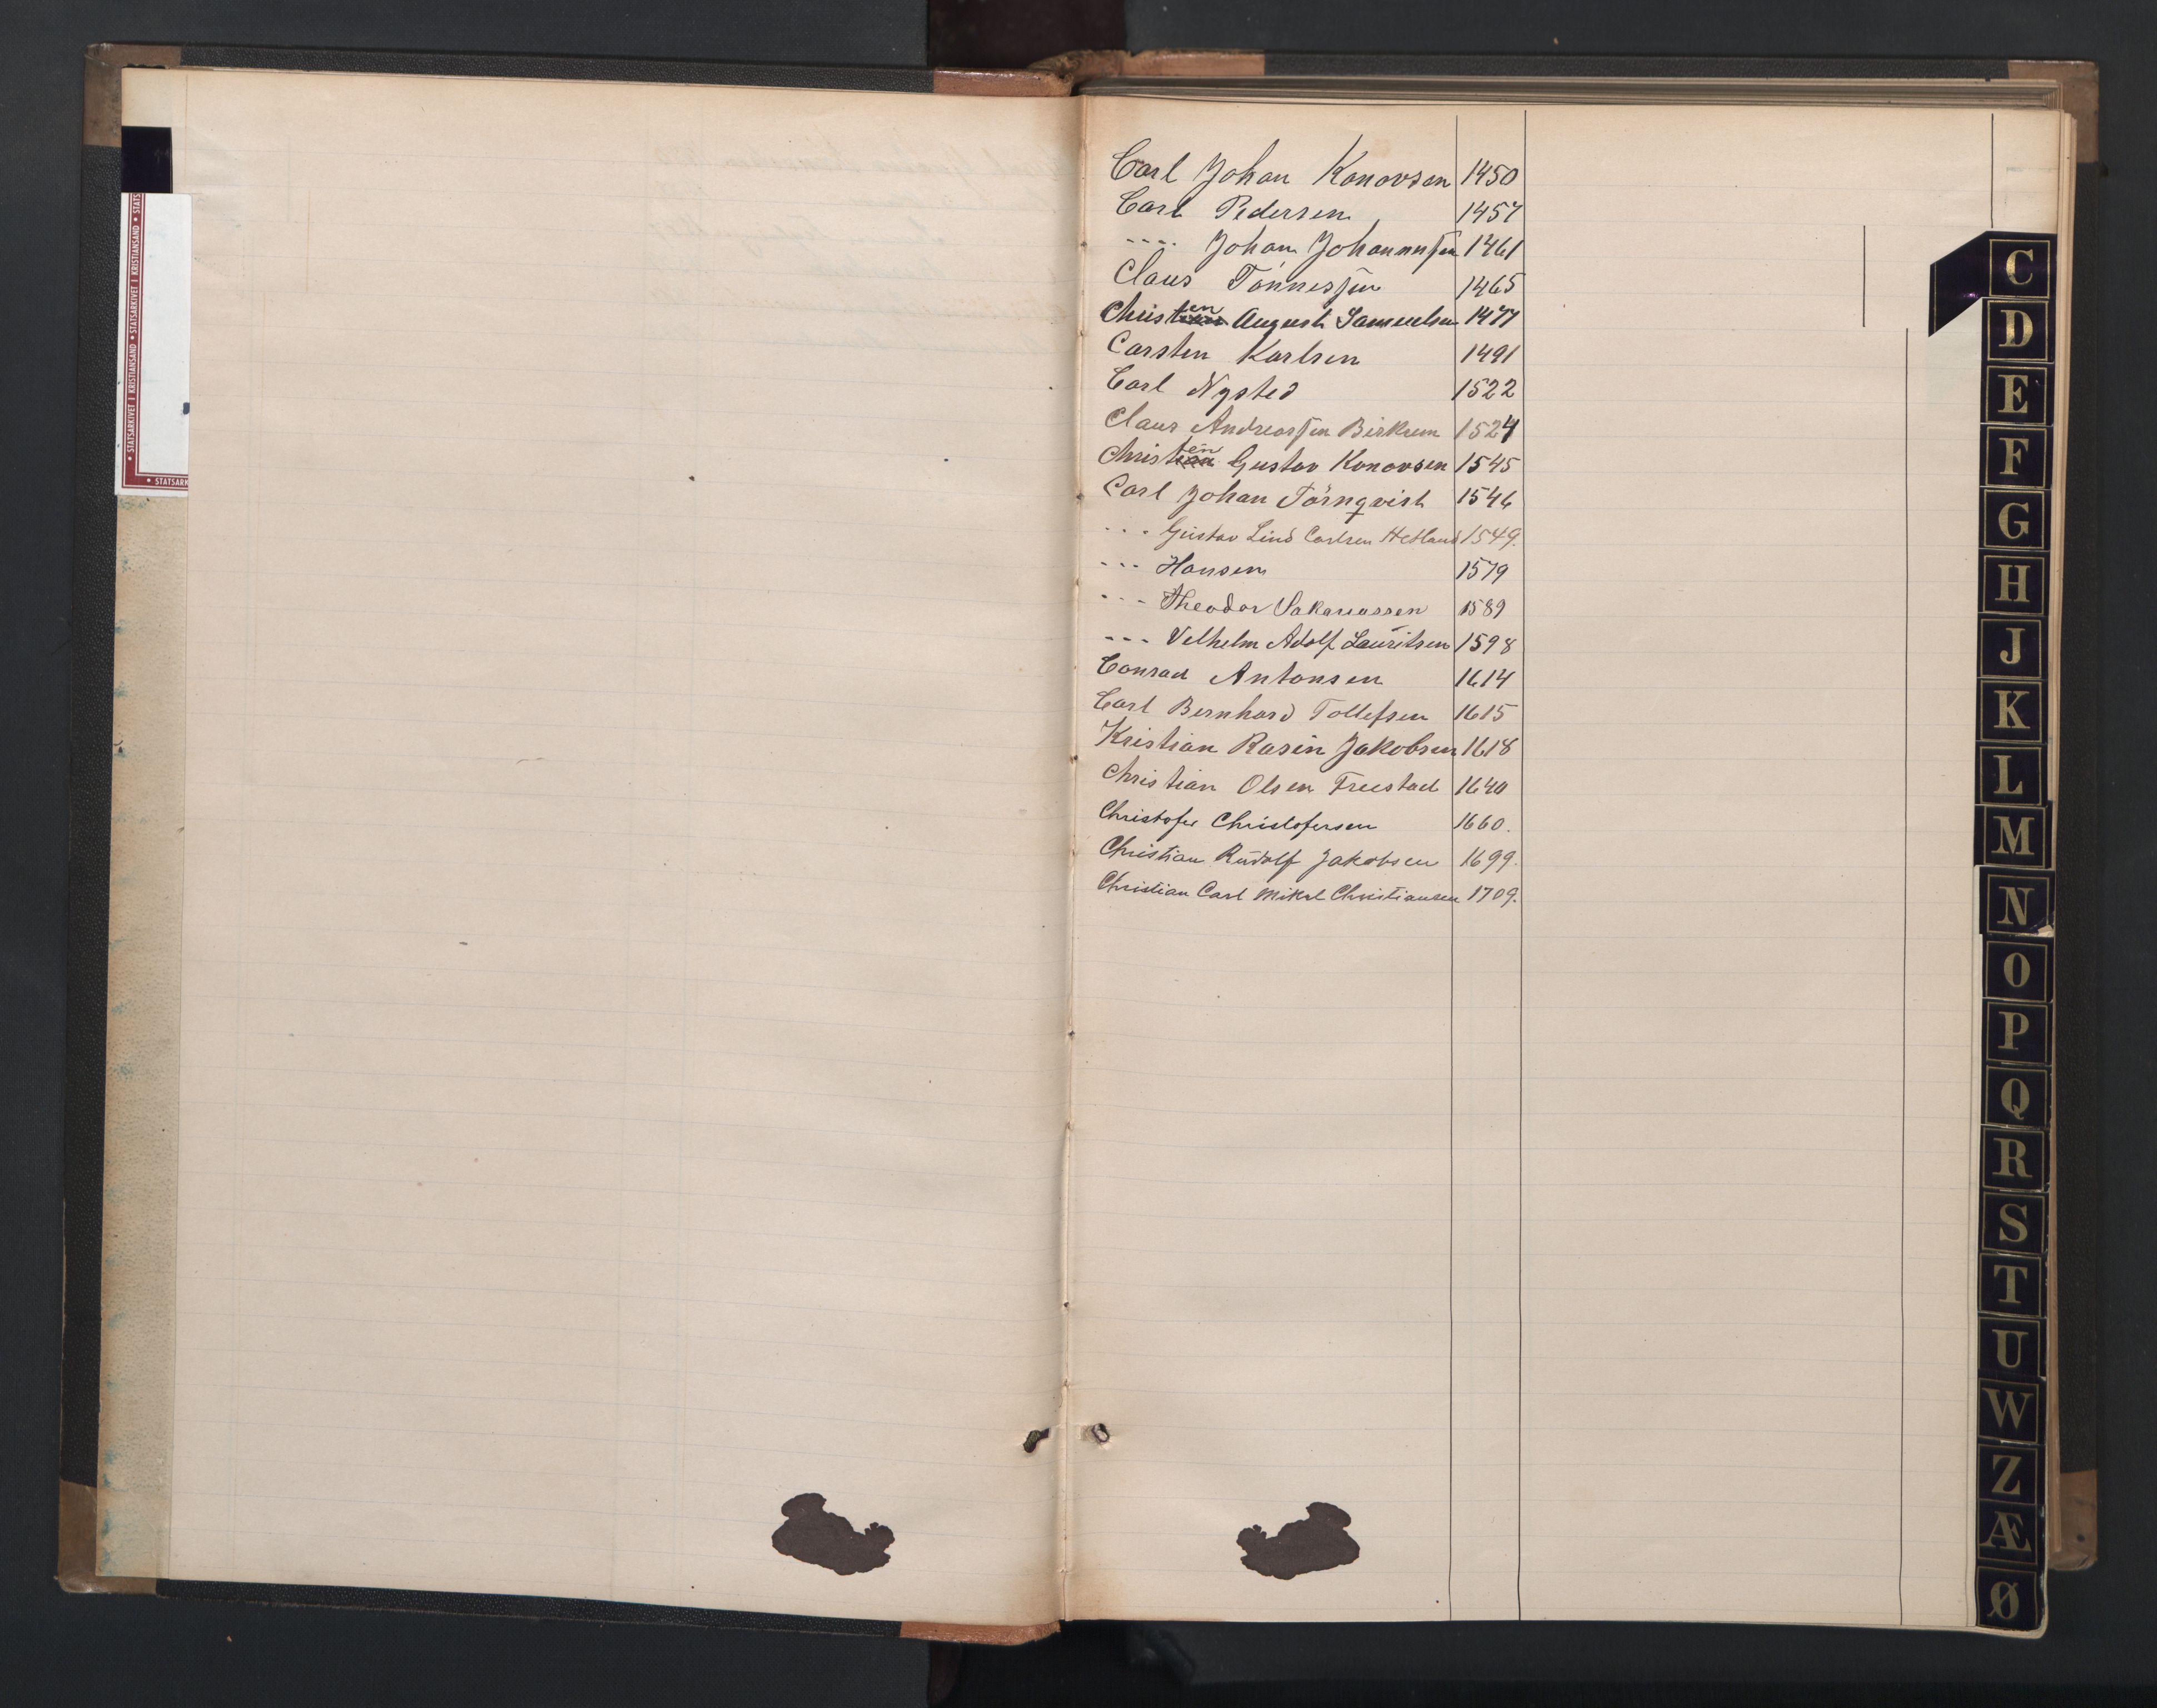 • STATSARKIVET I KRISTIANSAND • STATSARKIVET I KRISTIANSAND • STATS
• STATSARK
Carl Johan Konovsen 1450
Carl Pedersen 1457
---- Johan Johannesen 1461
Claus Tönnessen 1465
Christen August Samuelsen 1477
Carsten Karlsen 1491
Carl Nysted 1522
Claus Andreassen Birkrem 1524
Christen Gustav Konovsen 1545
Carl Johan Törnqvist 1546
--- Gustav Lind Carlsen Hetland 1549.
--- Hansen 1579
--- Theodor Sakariassen 1589
--- Velhelm Adolf Lauritsen 1598
Conrad Antonsen 1614
Carl Bernhard Tollefsen 1615
Kristian Rasin Jakobsen 1618
Christian Olsen Freestad 1640
Christofer Christofersen 1660.
Christian Rudolf Jakobsen 1699.
Christian Carl Mikal Christiansen 1709.
C
D
E
F
G
H
J
K
L
M
N
O
P
Q
R
S
T
U
W
Z
Æ
Ø